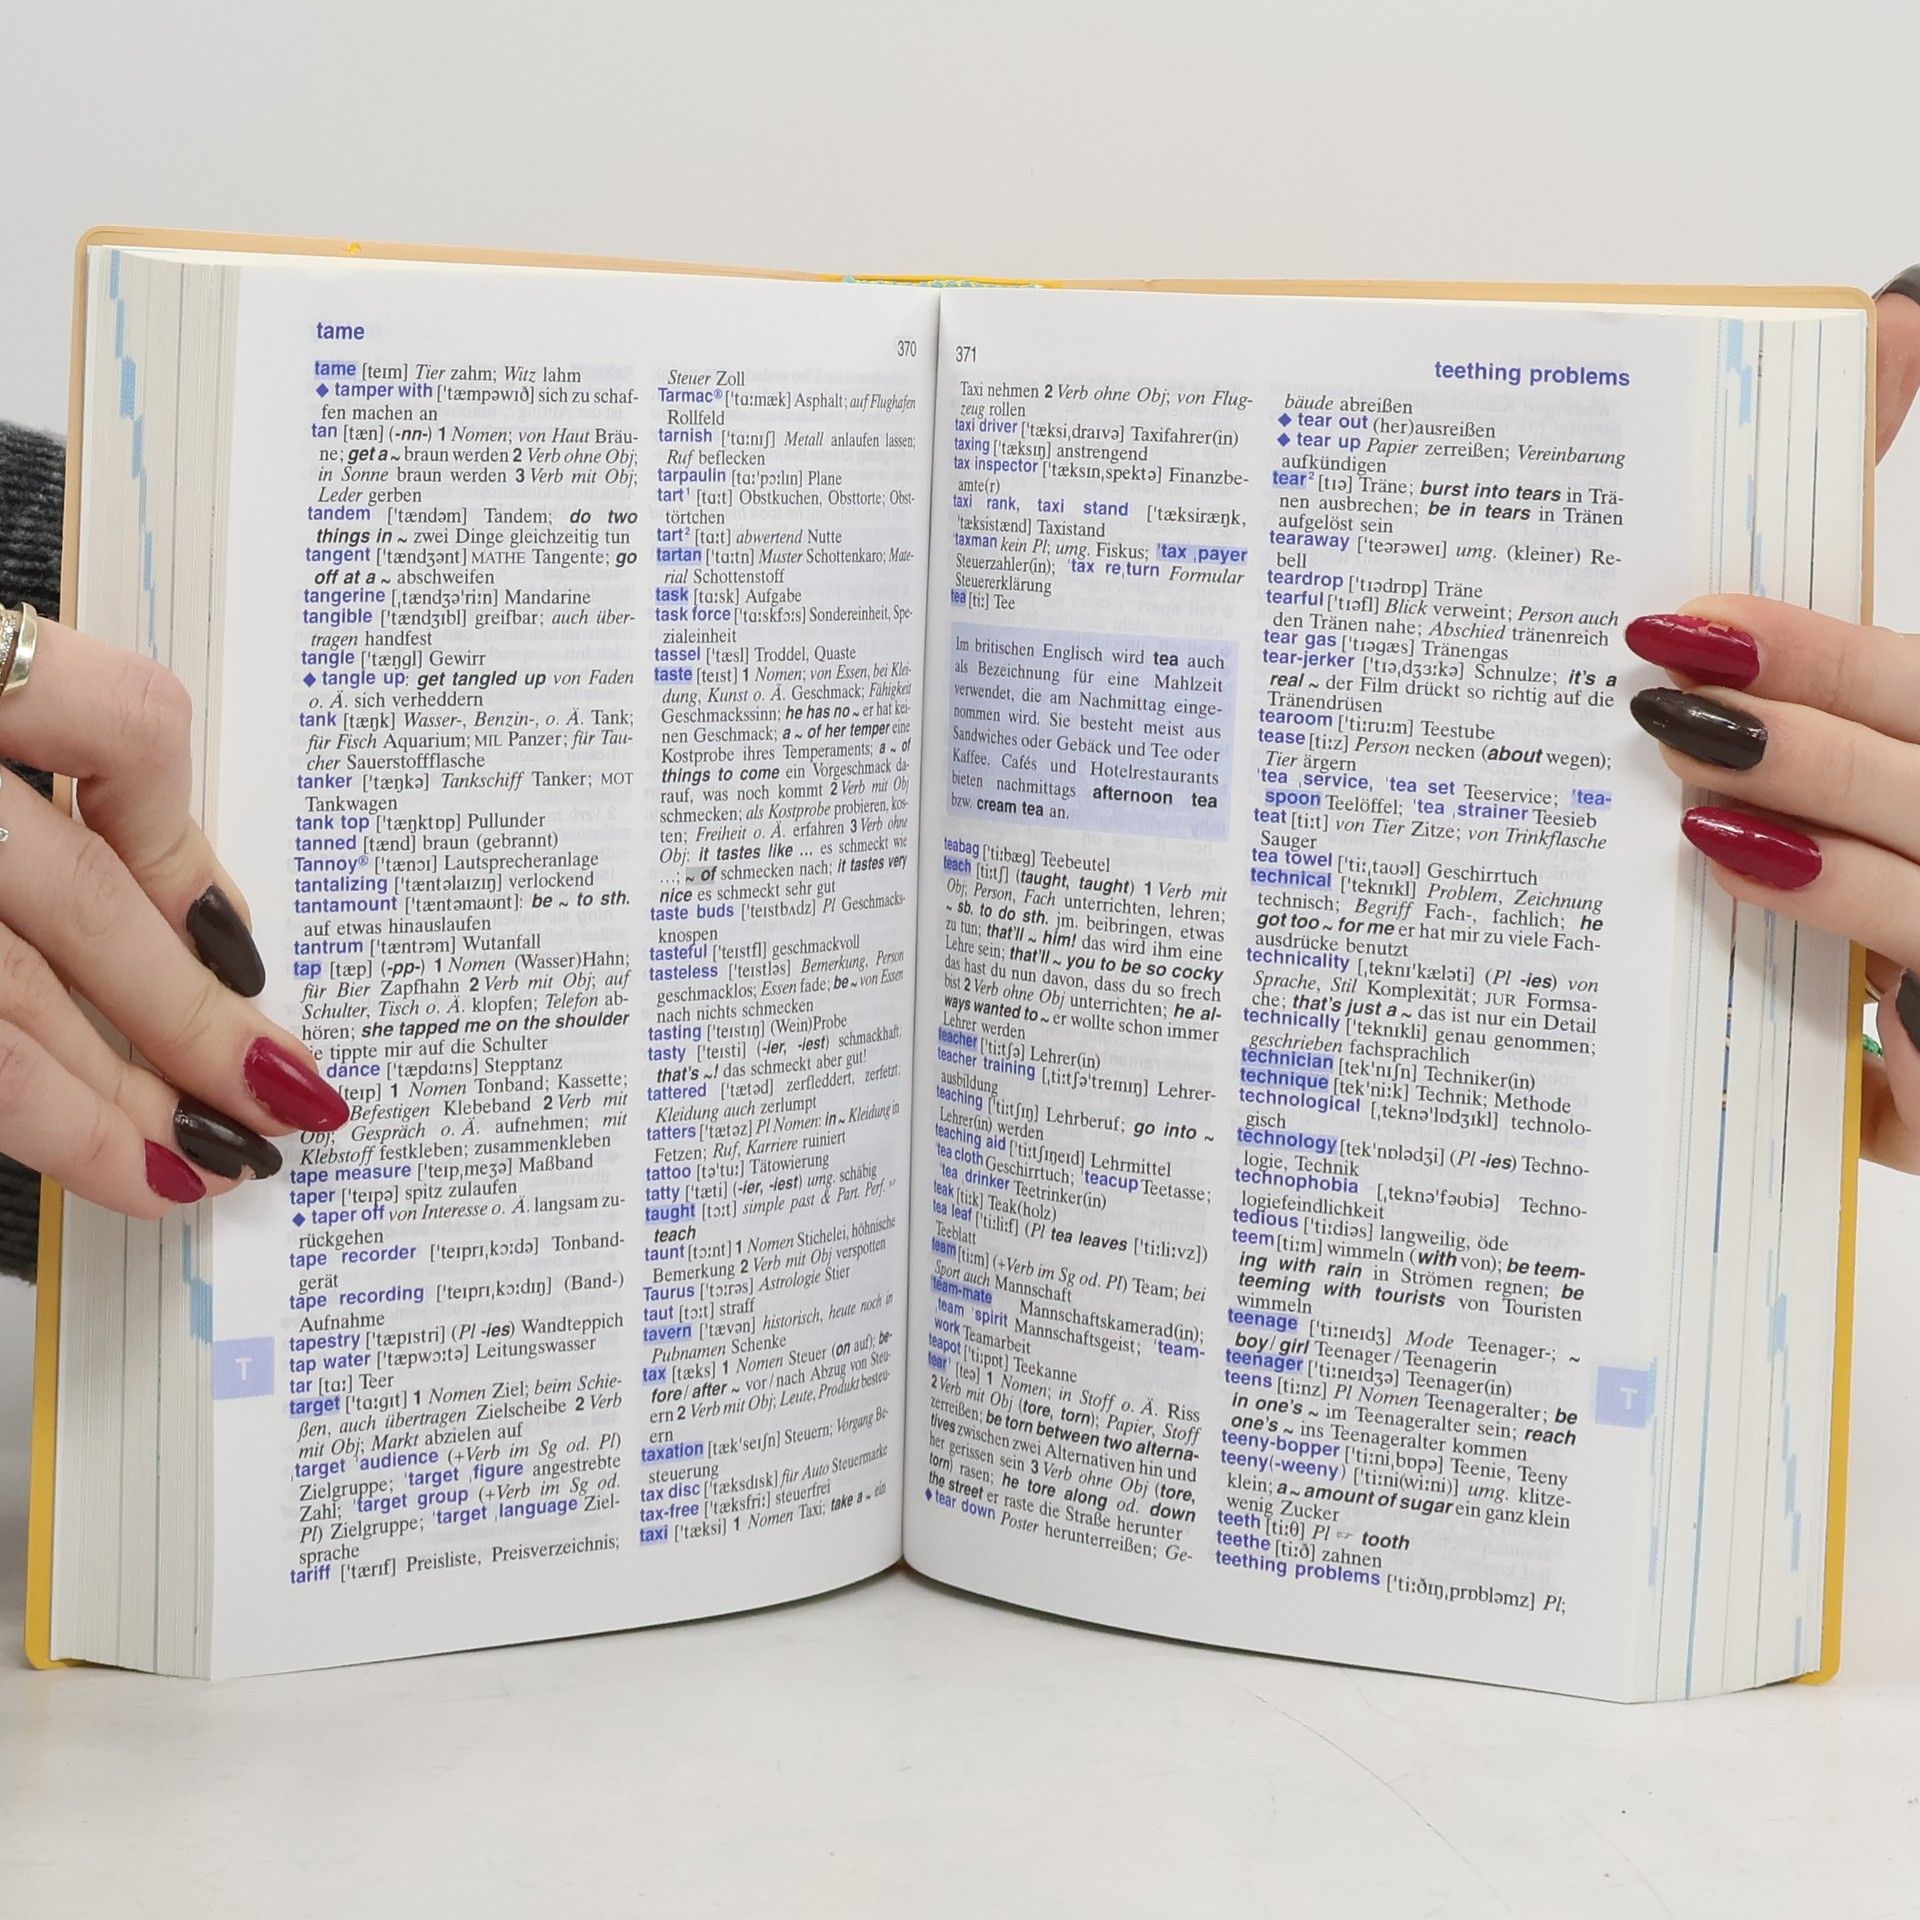 tame
370
tame [teɪm] Tier zahm; Witz lahm
◆ tamper with ['tæmpəwɪð] sich zu schaf-
fen machen an
tan [tæn] (-nn-) 1 Nomen; von Haut Bräu-
ne; get a ~ braun werden 2 Verb ohne Obj;
in Sonne braun werden 3 Verb mit Obj;
Leder gerben
tandem ['tændəm] Tandem; do two
things in ~ zwei Dinge gleichzeitig tun
tangent ['tændʒənt] MATHE Tangente; go
off at a ~ abschweifen
tangerine [ˌtændʒə'riːn] Mandarine
tangible ['tændʒɪbl] greifbar; auch über-
tragen handfest
tangle ['tæŋgl] Gewirr
◆ tangle up: get tangled up von Faden
o. Ä. sich verheddern
tank [tæŋk] Wasser-, Benzin-, o. Ä. Tank;
für Fisch Aquarium; MIL Panzer; für Tau-
cher Sauerstoffflasche
tanker ['tæŋkə] Tankschiff Tanker; MOT
Tankwagen
tank top ['tæŋktɒp] Pullunder
tanned [tænd] braun (gebrannt)
Tannoy® ['tænɔɪ] Lautsprecheranlage
tantalizing ['tæntəlaɪzɪŋ] verlockend
tantamount ['tæntəmaʊnt]: be ~ to sth.
auf etwas hinauslaufen
tantrum ['tæntrəm] Wutanfall
tap [tæp] (-pp-) 1 Nomen (Wasser)Hahn;
für Bier Zapfhahn 2 Verb mit Obj; auf
Schulter, Tisch o. Ä. klopfen; Telefon ab-
hören; she tapped me on the shoulder
tippte mir auf die Schulter
dance ['tæpdɑːns] Stepptanz
[teɪp] 1 Nomen Tonband; Kassette;
Befestigen Klebeband 2 Verb mit
Obj; Gespräch o. Ä. aufnehmen; mit
Klebstoff festkleben; zusammenkleben
tape measure ['teɪpˌmeʒə] Maßband
taper ['teɪpə] spitz zulaufen
◆ taper off von Interesse o. Ä. langsam zu-
rückgehen
tape recorder ['teɪprɪˌkɔːdə] Tonband-
gerät
tape recording ['teɪprɪˌkɔːdɪŋ] (Band-)
Aufnahme
tapestry ['tæpɪstri] (Pl -ies) Wandteppich
tap water ['tæpwɔːtə] Leitungswasser
tar [tɑː] Teer
target ['tɑːgɪt] 1 Nomen Ziel; beim Schie-
ßen, auch übertragen Zielscheibe 2 Verb
mit Obj; Markt abzielen auf
ˌtarget 'audience (+Verb im Sg od. Pl)
Zielgruppe; 'target ˌfigure angestrebte
Zahl; 'target group (+Verb im Sg od.
Pl) Zielgruppe; 'target ˌlanguage Ziel-
sprache
tariff ['tærɪf] Preisliste, Preisverzeichnis;
T
Steuer Zoll
Tarmac® ['tɑːmæk] Asphalt; auf Flughafen
Rollfeld
tarnish ['tɑːnɪʃ] Metall anlaufen lassen;
Ruf beflecken
tarpaulin [tɑː'pɔːlɪn] Plane
tart¹ [tɑːt] Obstkuchen, Obsttorte; Obst-
törtchen
tart² [tɑːt] abwertend Nutte
tartan ['tɑːtn] Muster Schottenkaro; Mate-
rial Schottenstoff
task [tɑːsk] Aufgabe
task force ['tɑːskfɔːs] Sondereinheit, Spe-
zialeinheit
tassel ['tæsl] Troddel, Quaste
taste [teɪst] 1 Nomen; von Essen, bei Klei-
dung, Kunst o. Ä. Geschmack; Fähigkeit
Geschmackssinn; he has no ~ er hat kei-
nen Geschmack; a ~ of her temper eine
Kostprobe ihres Temperaments; a ~ of
things to come ein Vorgeschmack da-
rauf, was noch kommt 2 Verb mit Obj
schmecken; als Kostprobe probieren, kos-
ten; Freiheit o. Ä. erfahren 3 Verb ohne
Obj: it tastes like ... es schmeckt wie
...; ~ of schmecken nach; it tastes very
nice es schmeckt sehr gut
taste buds ['teɪstbʌdz] Pl Geschmacks-
knospen
tasteful ['teɪstfl] geschmackvoll
tasteless ['teɪstləs] Bemerkung, Person
geschmacklos; Essen fade; be ~ von Essen
nach nichts schmecken
tasting ['teɪstɪŋ] (Wein)Probe
tasty ['teɪsti] (-ier, -iest) schmackhaft;
that's ~! das schmeckt aber gut!
tattered ['tætəd] zerfleddert, zerfetzt;
Kleidung auch zerlumpt
tatters ['tætəz] Pl Nomen: in ~ Kleidung in
Fetzen; Ruf, Karriere ruiniert
tattoo [tə'tuː] Tätowierung
tatty ['tæti] (-ier, -iest) umg. schäbig
taught [tɔːt] simple past & Part. Perf. ☞
teach
taunt [tɔːnt] 1 Nomen Stichelei, höhnische
Bemerkung 2 Verb mit Obj verspotten
Taurus ['tɔːrəs] Astrologie Stier
taut [tɔːt] straff
tavern ['tævən] historisch, heute noch in
Pubnamen Schenke
tax [tæks] 1 Nomen Steuer (on auf); be-
fore/after ~ vor/nach Abzug von Steu-
ern 2 Verb mit Obj; Leute, Produkt besteu-
ern
taxation [tæk'seɪʃn] Steuern; Vorgang Be-
steuerung
tax disc ['tæksdɪsk] für Auto Steuermarke
tax-free ['tæksfriː] steuerfrei
taxi ['tæksi] 1 Nomen Taxi; take a ~ ein
371
teething problems
Taxi nehmen 2 Verb ohne Obj; von Flug-
zeug rollen
taxi driver ['tæksiˌdraɪvə] Taxifahrer(in)
taxing ['tæksɪŋ] anstrengend
tax inspector ['tæksɪnˌspektə] Finanzbe-
amte(r)
taxi rank, taxi stand ['tæksiræŋk,
'tæksistænd] Taxistand
'taxman kein Pl; umg. Fiskus; 'tax ˌpayer
Steuerzahler(in); 'tax reˌturn Formular
Steuererklärung
tea [tiː] Tee
Im britischen Englisch wird tea auch
als Bezeichnung für eine Mahlzeit
verwendet, die am Nachmittag einge-
nommen wird. Sie besteht meist aus
Sandwiches oder Gebäck und Tee oder
Kaffee. Cafés und Hotelrestaurants
bieten nachmittags afternoon tea
bzw. cream tea an.
teabag ['tiːbæg] Teebeutel
teach [tiːtʃ] (taught, taught) 1 Verb mit
Obj; Person, Fach unterrichten, lehren;
~ sb. to do sth. jm. beibringen, etwas
zu tun; that'll ~ him! das wird ihm eine
Lehre sein; that'll ~ you to be so cocky
das hast du nun davon, dass du so frech
bist 2 Verb ohne Obj unterrichten; he al-
ways wanted to ~ er wollte schon immer
Lehrer werden
teacher ['tiːtʃə] Lehrer(in)
teacher training [ˌtiːtʃə'treɪnɪŋ] Lehrer-
ausbildung
teaching ['tiːtʃɪŋ] Lehrberuf; go into ~
Lehrer(in) werden
teaching aid ['tiːtʃɪŋeɪd] Lehrmittel
'tea cloth Geschirrtuch; 'teacup Teetasse;
'tea ˌdrinker Teetrinker(in)
teak [tiːk] Teak(holz)
tea leaf ['tiːliːf] (Pl tea leaves ['tiːliːvz])
Teeblatt
team [tiːm] (+Verb im Sg od. Pl) Team; bei
Sport auch Mannschaft
'team-mate Mannschaftskamerad(in);
ˌteam 'spirit Mannschaftsgeist; 'team-
work Teamarbeit
teapot ['tiːpɒt] Teekanne
tear¹ [teə] 1 Nomen; in Stoff o. Ä. Riss
2 Verb mit Obj (tore, torn); Papier, Stoff
zerreißen; be torn between two alterna-
tives zwischen zwei Alternativen hin und
her gerissen sein 3 Verb ohne Obj (tore,
torn) rasen; he tore along od. down
the street er raste die Straße herunter
◆ tear down Poster herunterreißen; Ge-
bäude abreißen
◆ tear out (her)ausreißen
◆ tear up Papier zerreißen; Vereinbarung
aufkündigen
tear² [tɪə] Träne; burst into tears in Trä-
nen ausbrechen; be in tears in Tränen
aufgelöst sein
tearaway ['teərəweɪ] umg. (kleiner) Re-
bell
teardrop ['tɪədrɒp] Träne
tearful ['tɪəfl] Blick verweint; Person auch
den Tränen nahe; Abschied tränenreich
tear gas ['tɪəgæs] Tränengas
tear-jerker ['tɪəˌdʒɜːkə] Schnulze; it's a
real ~ der Film drückt so richtig auf die
Tränendrüsen
tearoom ['tiːruːm] Teestube
tease [tiːz] Person necken (about wegen);
Tier ärgern
'tea ˌservice, 'tea set Teeservice; 'tea-
spoon Teelöffel; 'tea ˌstrainer Teesieb
teat [tiːt] von Tier Zitze; von Trinkflasche
Sauger
tea towel ['tiːˌtaʊəl] Geschirrtuch
technical ['teknɪkl] Problem, Zeichnung
technisch; Begriff Fach-, fachlich; he
got too ~ for me er hat mir zu viele Fach-
ausdrücke benutzt
technicality [ˌteknɪ'kæləti] (Pl -ies) von
Sprache, Stil Komplexität; JUR Formsa-
che; that's just a ~ das ist nur ein Detail
technically ['teknɪkli] genau genommen;
geschrieben fachsprachlich
technician [tek'nɪʃn] Techniker(in)
technique [tek'niːk] Technik; Methode
technological [ˌteknə'lɒdʒɪkl] technolo-
gisch
technology [tek'nɒlədʒi] (Pl -ies) Techno-
logie, Technik
technophobia [ˌteknə'fəʊbiə] Techno-
logiefeindlichkeit
tedious ['tiːdiəs] langweilig, öde
teem [tiːm] wimmeln (with von); be teem-
ing with rain in Strömen regnen; be
teeming with tourists von Touristen
wimmeln
teenage ['tiːneɪdʒ] Mode Teenager-; ~
boy/girl Teenager/Teenagerin
teenager ['tiːneɪdʒə] Teenager(in)
teens [tiːnz] Pl Nomen Teenageralter; be
in one's ~ im Teenageralter sein; reach
one's ~ ins Teenageralter kommen
teeny-bopper ['tiːniˌbɒpə] Teenie, Teeny
teeny(-weeny) ['tiːni(wiːni)] umg. klitze-
klein; a ~ amount of sugar ein ganz klein
wenig Zucker
teeth [tiːθ] Pl ☞ tooth
teethe [tiːð] zahnen
teething problems ['tiːðɪŋˌprɒbləmz] Pl;
T